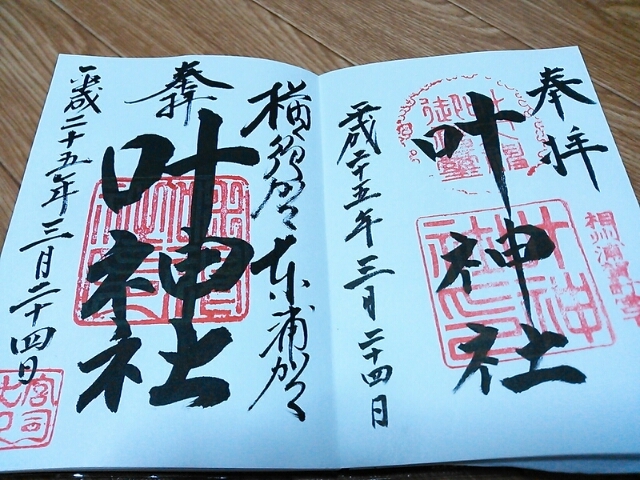 奉拝
叶神社
平成二十五年 三月二十四日
相州浦賀
横須賀 東浦賀
奉拝
叶神社
平成二十五年 三月二十四日
宮司